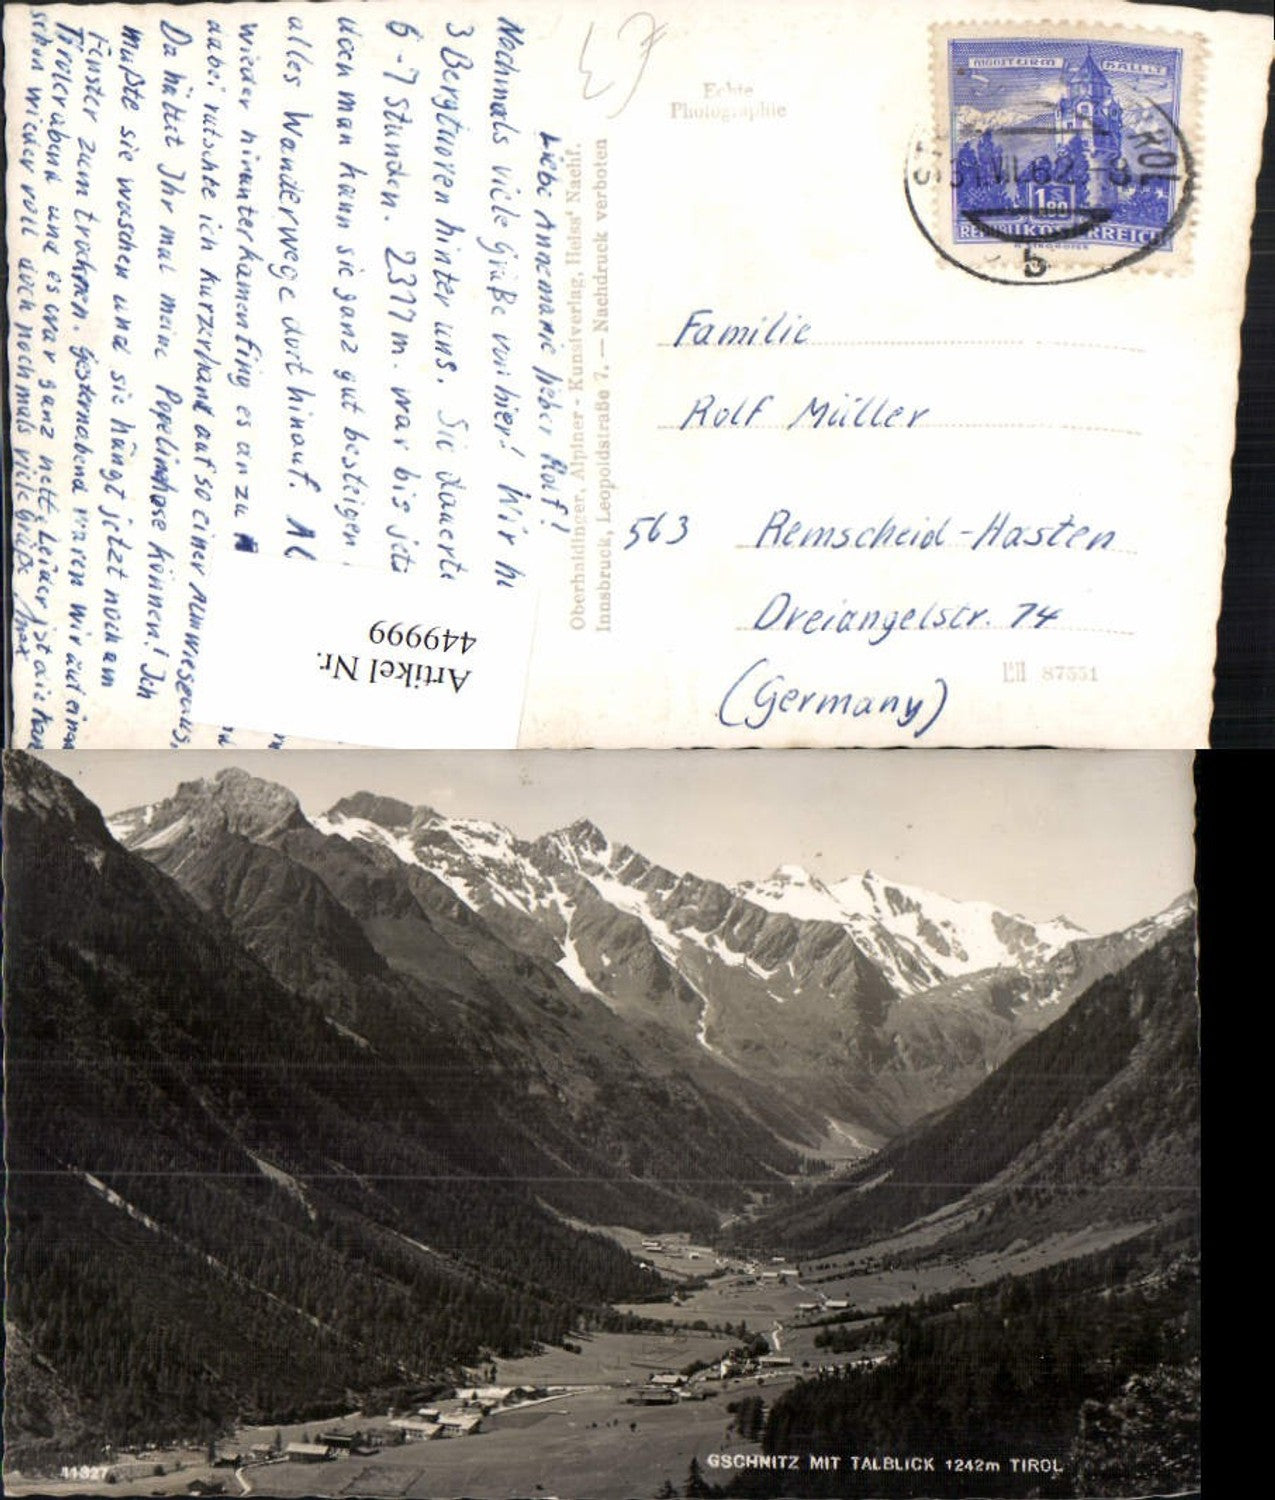 Echte
Photographie
MÜNZTURM HALL I. T.
1.80 S
REPUBLIK ÖSTERREICH
31.VII.62
b
Liebe Annemarie lieber Rolf!
Nochmals viele Grüße von hier! Wir
3 Bergtouren hinter uns. Sie dauerte
6-7 Stunden. 2377 m. war bis jetz
doch man kann sie ganz gut besteigen
alles Wanderwege dort hinauf. Al
wieder hinunterkamen fing es an zu
dabei rutschte ich kurzerhand auf so einer Almwiese aus,
Da hättet Ihr mal meine Popelinhose können! Ich
mußte sie waschen und sie hängt jetzt noch am
Fenster zum trocknen. Gesternabend waren wir auf einem
Tirolerabend und es war ganz nett. Leider ist die Kar
schon wieder voll doch nochmals viele Grüße
Oberhaidinger, Alpiner - Kunstverlag, Heiss' Nachf.
Innsbruck, Leopoldstraße 7. — Nachdruck verboten
Familie
Rolf Müller
563 Remscheid-Hasten
Dreiangelstr. 74
(Germany)
87551
Artikel Nr.
449999
11327
GSCHNITZ MIT TALBLICK 1242m TIROL